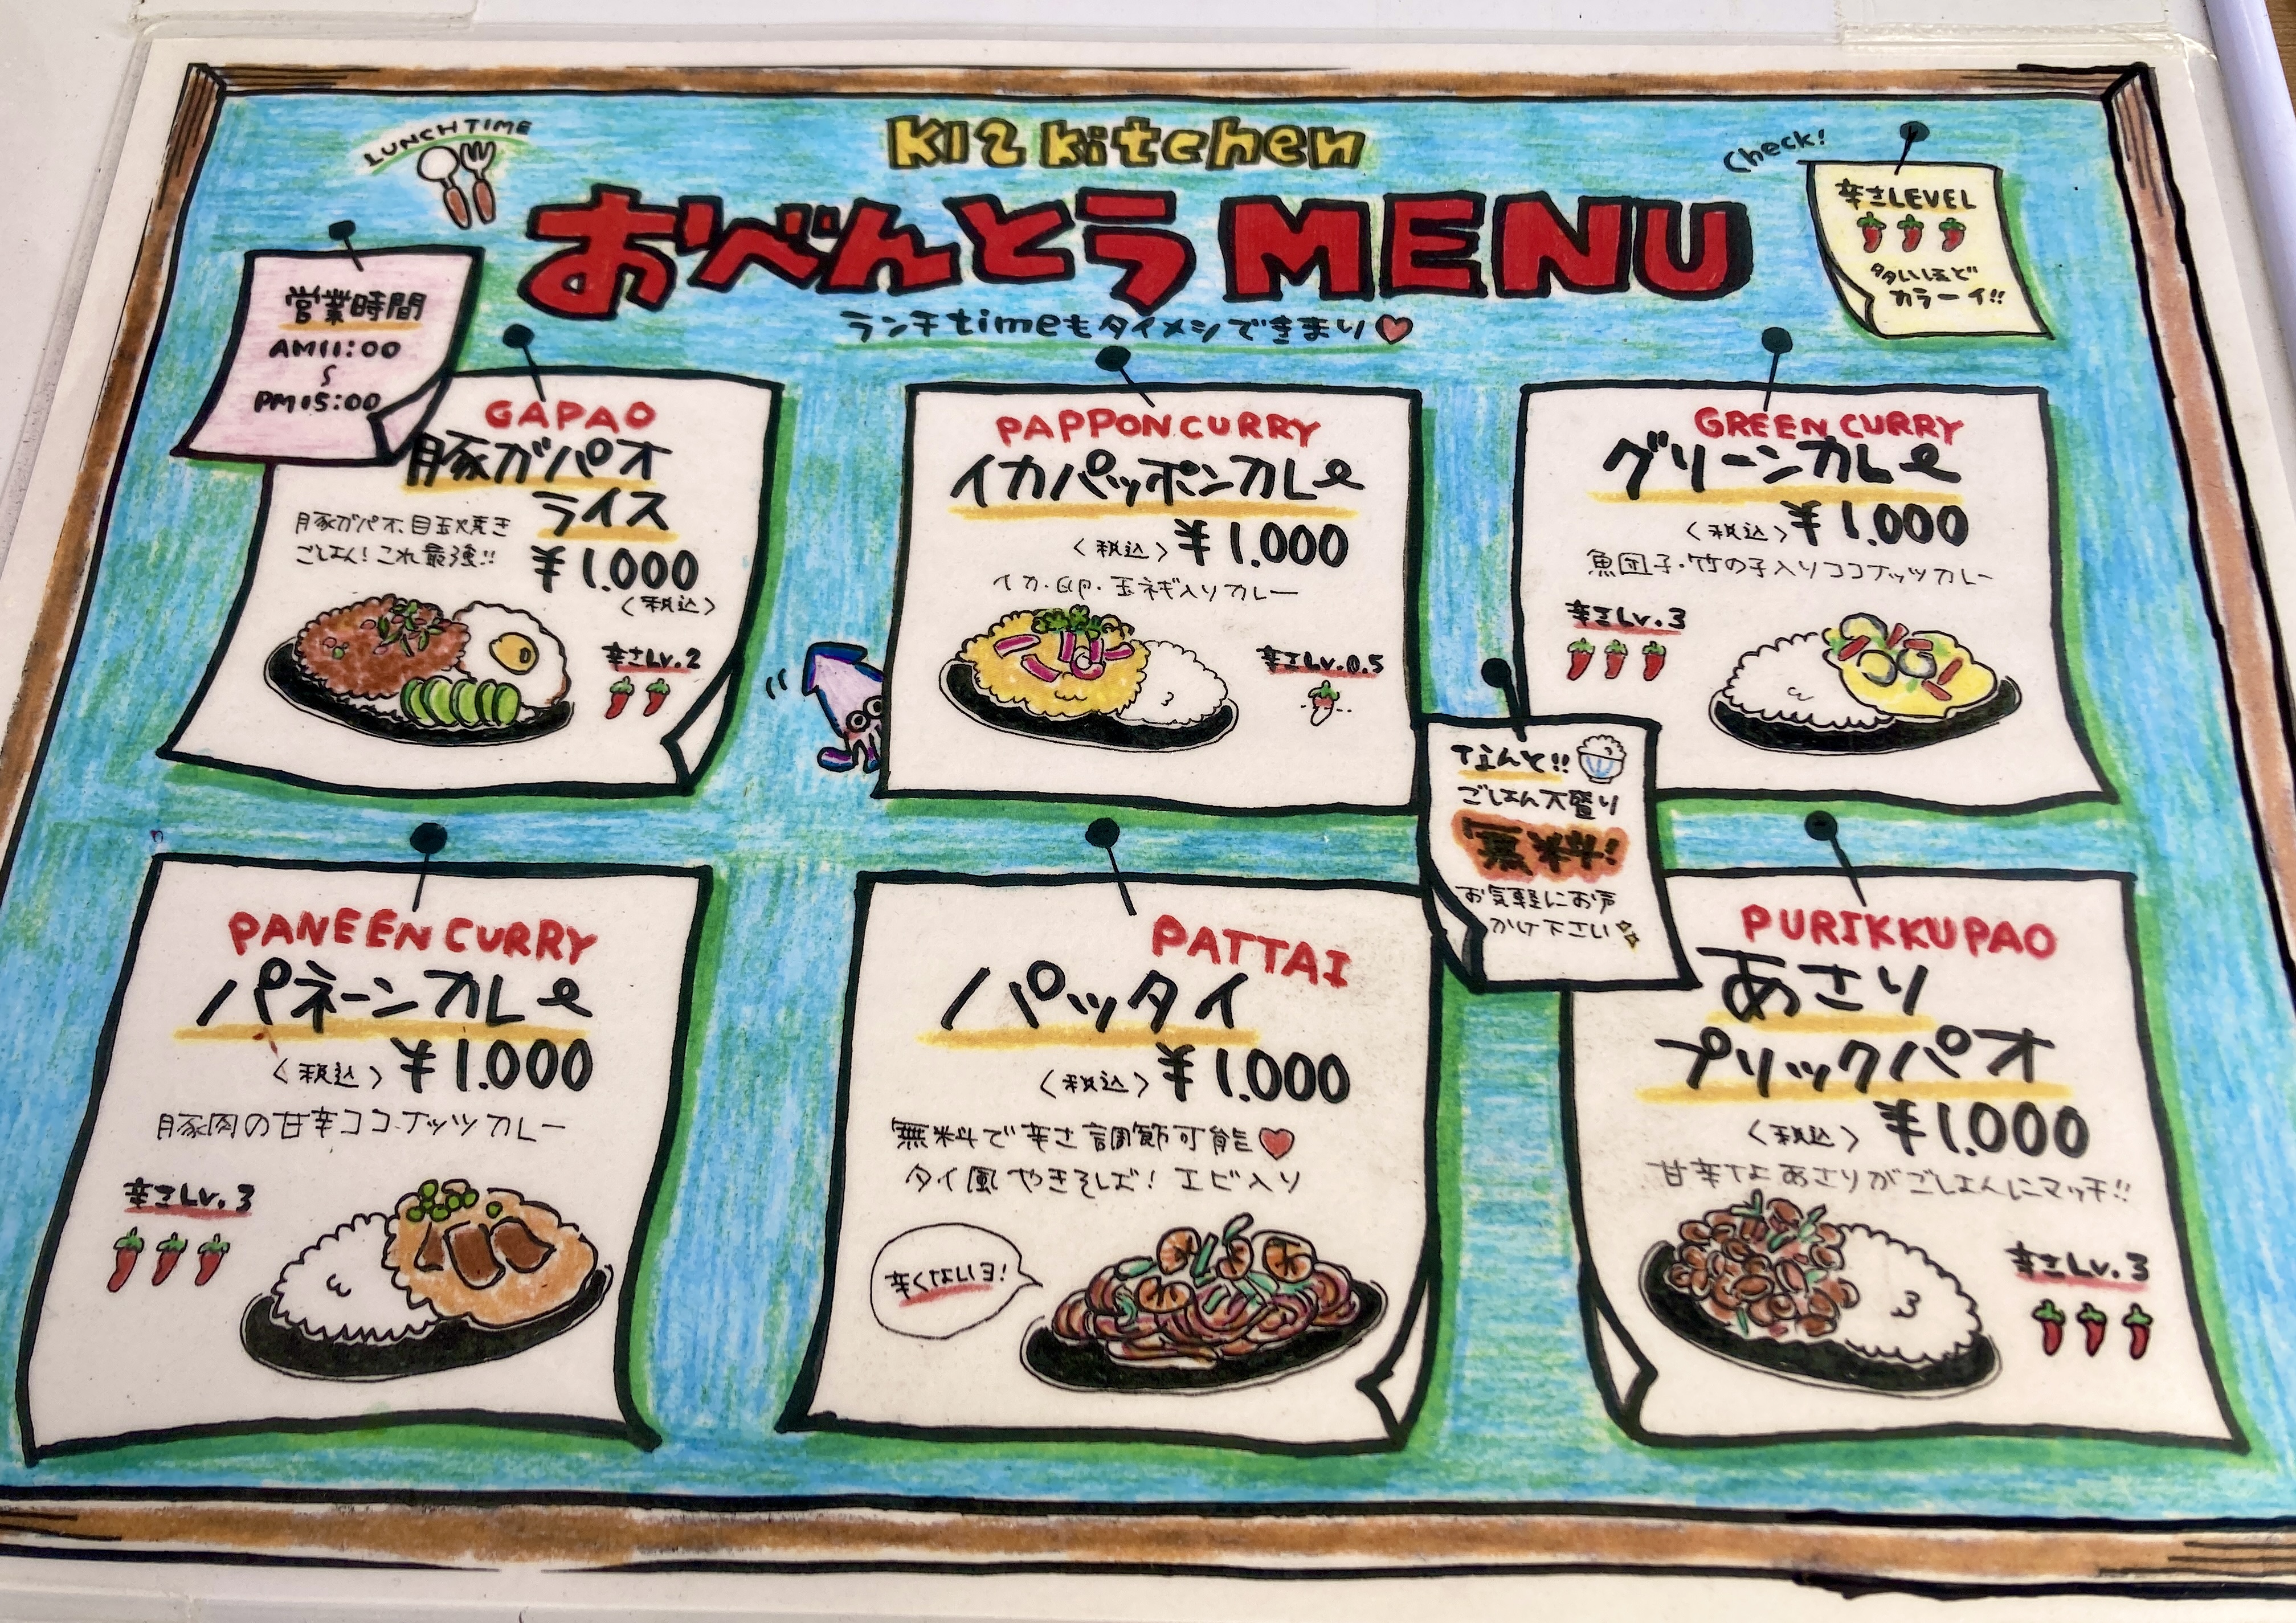 LUNCH TIME
K12 kitchen
おべんとうMENU
ランチtimeもタイメシできまり♡
Check!
辛さLEVEL
多いほど
カラーイ!!
営業時間
AM11:00
〜
PM15:00
GAPAO
豚ガパオ
ライス
豚ガパオ、目玉焼き
ごはん!これ最強!!
¥1.000
〈税込〉
辛さLv.2
PAPPON CURRY
イカパッポンカレe
〈税込〉¥1.000
イカ・卵・玉ネギ入りカレー
辛さLv.0.5
GREEN CURRY
グリーンカレe
〈税込〉¥1.000
魚団子・竹の子入りココナッツカレー
辛さLv.3
なんと!!
ごはん大盛り
無料!
お気軽にお声
かけ下さい
PANEEN CURRY
パネーンカレe
〈税込〉¥1.000
豚肉の甘辛ココナッツカレー
辛さLv.3
PATTAI
パッタイ
〈税込〉¥1.000
無料で辛さ調節可能♡
タイ風やきそば!エビ入り
辛くないヨ!
PURIKKUPAO
あさり
プリックパオ
〈税込〉¥1.000
甘辛なあさりがごはんにマッチ!!
辛さLv.3